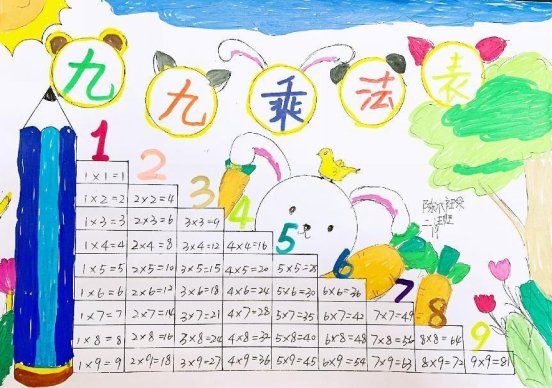 九九乘法表
1
2
3
4
5
6
7
8
9
1×1=1
1×2=2 2×2=4
1×3=3 2×3=6 3×3=9
1×4=4 2×4=8 3×4=12 4×4=16
1×5=5 2×5=10 3×5=15 4×5=20 5×5=25
1×6=6 2×6=12 3×6=18 4×6=24 5×6=30 6×6=36
1×7=7 2×7=14 3×7=21 4×7=28 5×7=35 6×7=42 7×7=49
1×8=8 2×8=16 3×8=24 4×8=32 5×8=40 6×8=48 7×8=56 8×8=64
1×9=9 2×9=18 3×9=27 4×9=36 5×9=45 6×9=54 7×9=63 8×9=72 9×9=81